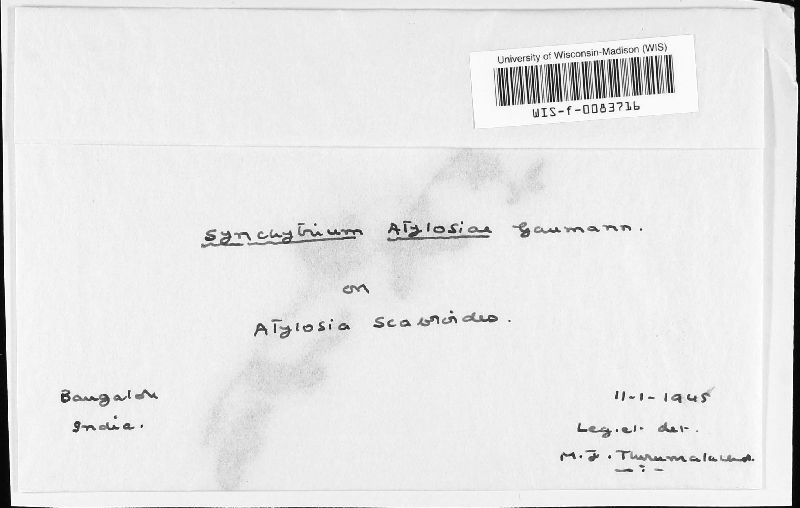 University of Wisconsin-Madison (WIS)
WIS-f-0083716
Synchytrium Atylosiae Gaumann.
on
Atylosia Scabroides.
Bangalore
India.
11-1-1945
Leg. et. det.
M. J. Thirumalachar.